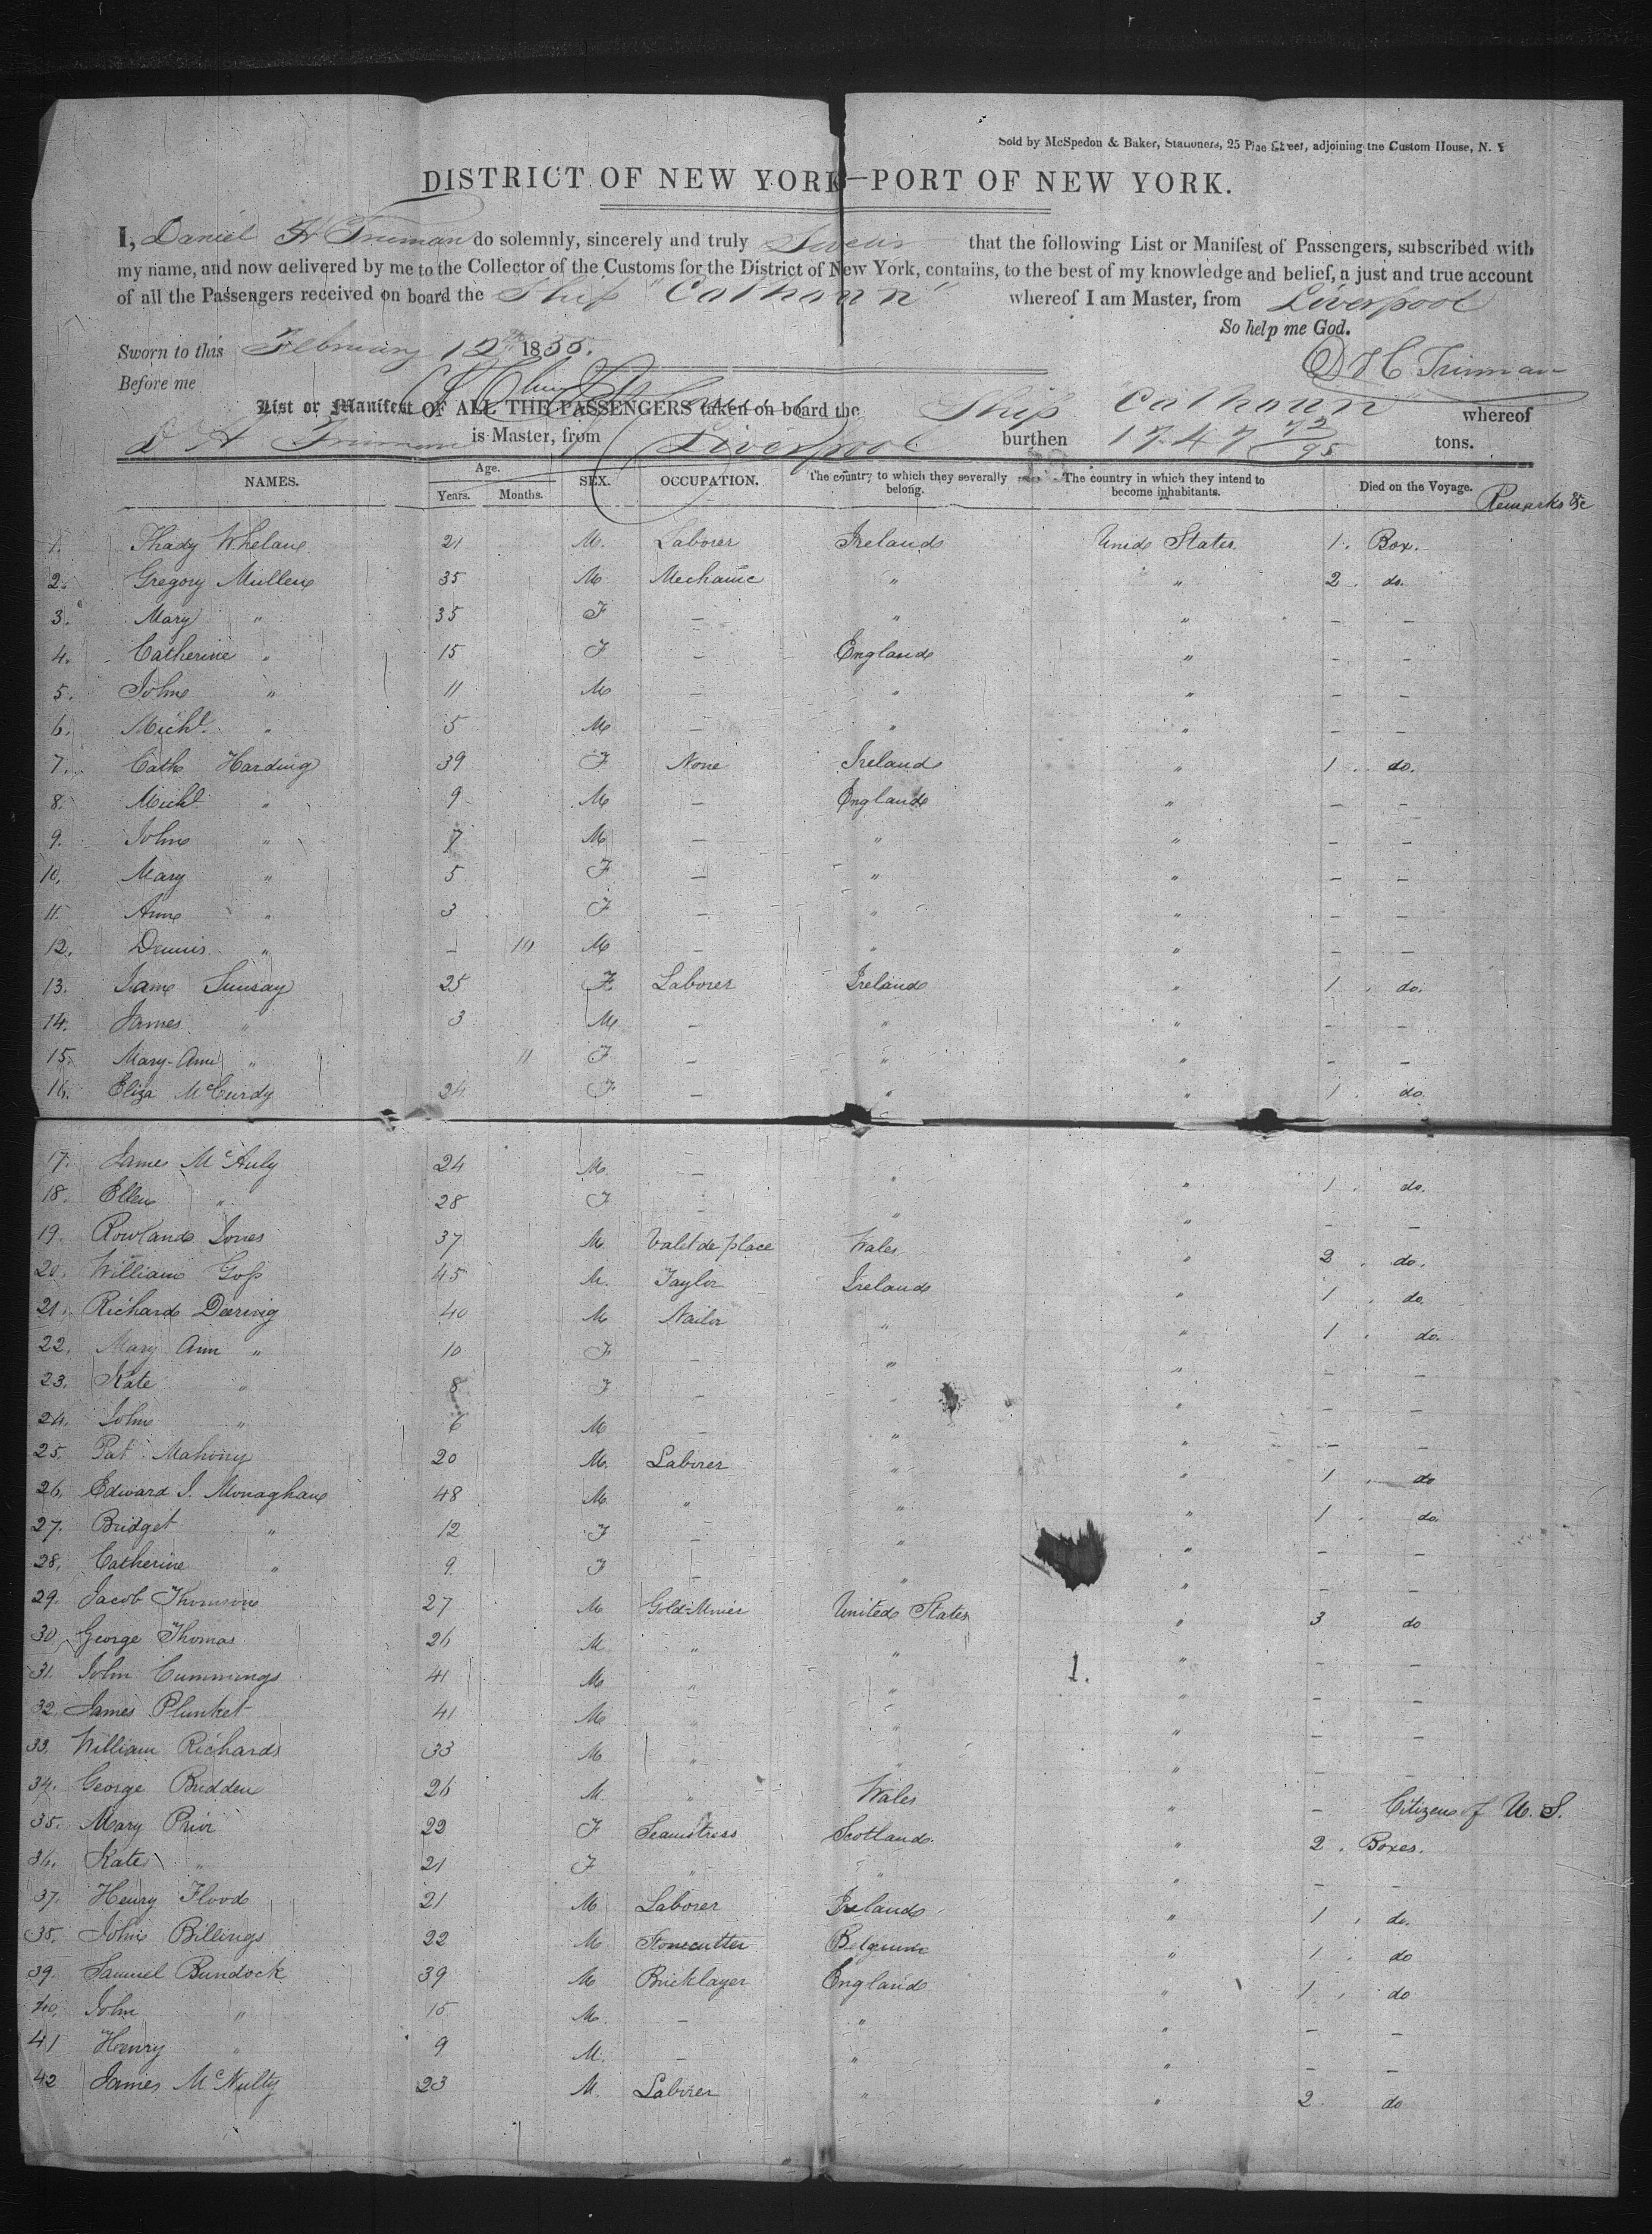 Sold by McSpedon & Baker, Stationers, 25 Pine Street, adjoining the Custom House, N. Y
DISTRICT OF NEW YORK—PORT OF NEW YORK.
I, Daniel H Truman do solemnly, sincerely and truly Swear that the following List or Manifest of Passengers, subscribed with
my name, and now delivered by me to the Collector of the Customs for the District of New York, contains, to the best of my knowledge and belief, a just and true account
of all the Passengers received on board the Ship "Calhoun" whereof I am Master, from Liverpool
So help me God.
Sworn to this February 12th 1855.
D H Truman
Before me
List or Manifest OF ALL THE PASSENGERS taken on board the Ship "Calhoun" whereof
D H Truman is Master, from Liverpool burthen 1747 72/95 tons.
NAMES. Age. Years. Months. SEX. OCCUPATION. The country to which they severally belong. The country in which they intend to become inhabitants. Died on the Voyage. Remarks &c
1. Thady Whelan 21 M. Laborer Ireland United States. 1. Box.
2. Gregory Mullen 35 M Mechanic " " 2. do.
3. Mary " 35 F — " " — —
4. Catherine " 15 F — England " — —
5. John " 11 M — " " — —
6. Michl. " 5 M — " " — —
7. Cath Harding 39 F None Ireland " 1. do.
8. Michl " 9 M — England " — —
9. John " 7 M — " " — —
10. Mary " 5 F — " " — —
11. Ann " 3 F — " " — —
12. Dennis " — 10 M — " " — —
13. Jane 25 F. Laborer Ireland " 1. do.
14. James " 3 M — " " — —
15. Mary-Ann " 11 F — " " — —
16. Eliza McCurdy 24 F — " " 1. do.
17. James McAuly 24 M. — " " 1. do.
18. Ellen " 28 F — " " — —
19. Rowland Jones 37 M Valet de place Wales " 2. do.
20. William Goss 45 M. Taylor Ireland " 1. do.
21. Richard Deering 40 M Nailor " " 1. do.
22. Mary Ann " 10 F — " " — —
23. Kate " 8 F — " " — —
24. John " 6 M — " " — —
25. Pat Mahony 20 M. Laborer " " 1. do
26. Edward J. Monaghan 48 M " " " 1. do.
27. Bridget " 12 F — " " — —
28. Catherine " 9. F — " " — —
29. Jacob Thomson 27 M Gold-Miner United States " 3 do
30. George Thomas 26 M " " " — —
31. John Cummings 41 M " " 1. " — —
32. James Plunket 41 M " " " — —
33. William Richards 33 M " " " — —
34. George Budden 26 M. " Wales " — Citizens of U. S.
35. Mary Prior 22 F Seamstress Scotland. " 2. Boxes.
36. Kate " 21 F " " " — —
37. Henry Flood 21 M Laborer Ireland " 1. do.
38. John Billings 22 M Stonecutter Belgium " 1. do
39. Samuel Bundock 39 M Bricklayer England " 1. do
40. John " 15 M. — " " — —
41 Henry " 9 M. — " " — —
42 James McNulty 23 M. Laborer " " 2. do